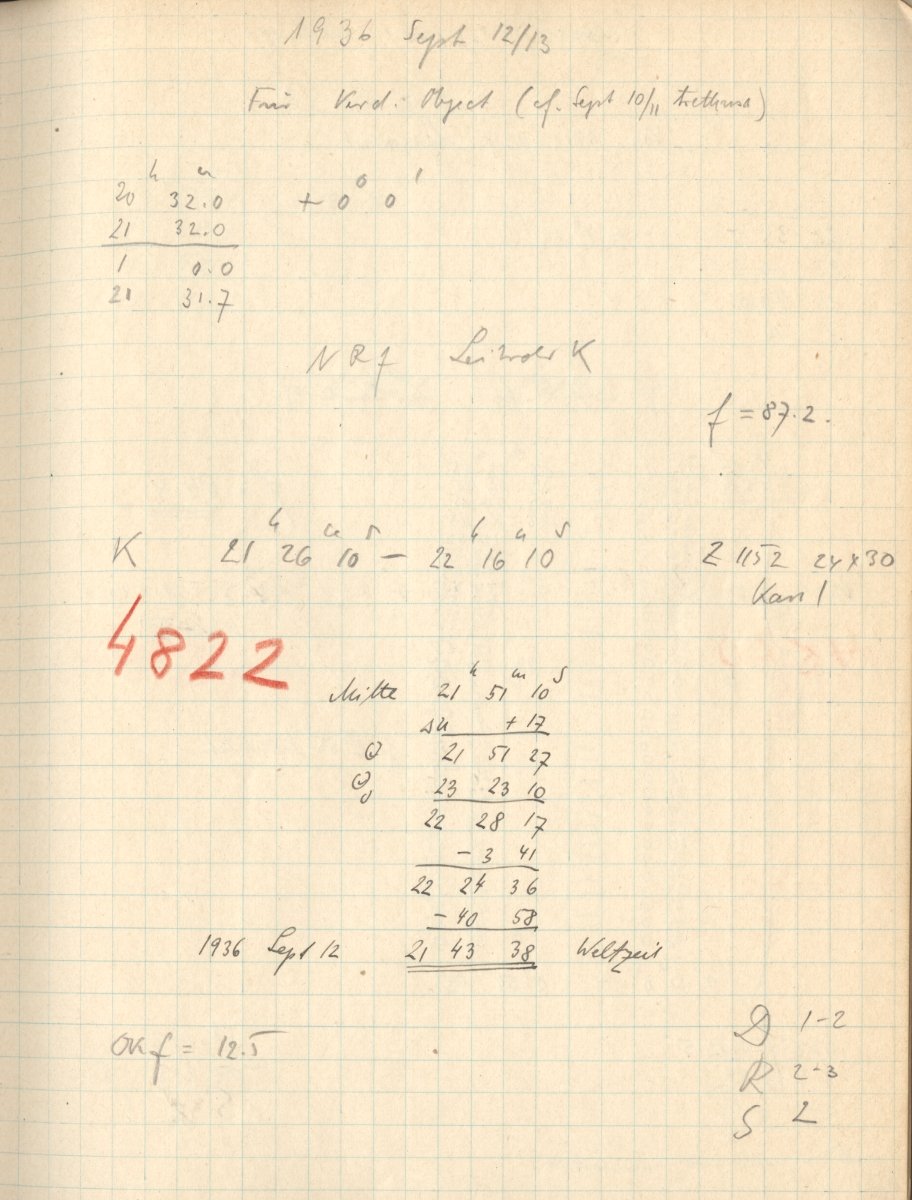 1936 Sept 12/13
Für Verd. Object (cf. Sept 10/11 Arethusa)
20ʰ 32.0ᵐ + 0° 0'
21 32.0
1 0.0
21 31.7
NRf Leitrohr K
f = 87.2.
K 21ʰ 26ᵐ 10ˢ — 22ʰ 16ᵐ 10ˢ Z 1152 24x30
Kass 1
4822
Mitte 21ʰ 51ᵐ 10ˢ
Δu + 17
21 51 27
23 23 10
22 28 17
- 3 41
22 24 36
- 40 58
1936 Sept 12 21 43 38 Weltzeit
OKf = 12.5
D 1-2
R 2-3
S 2